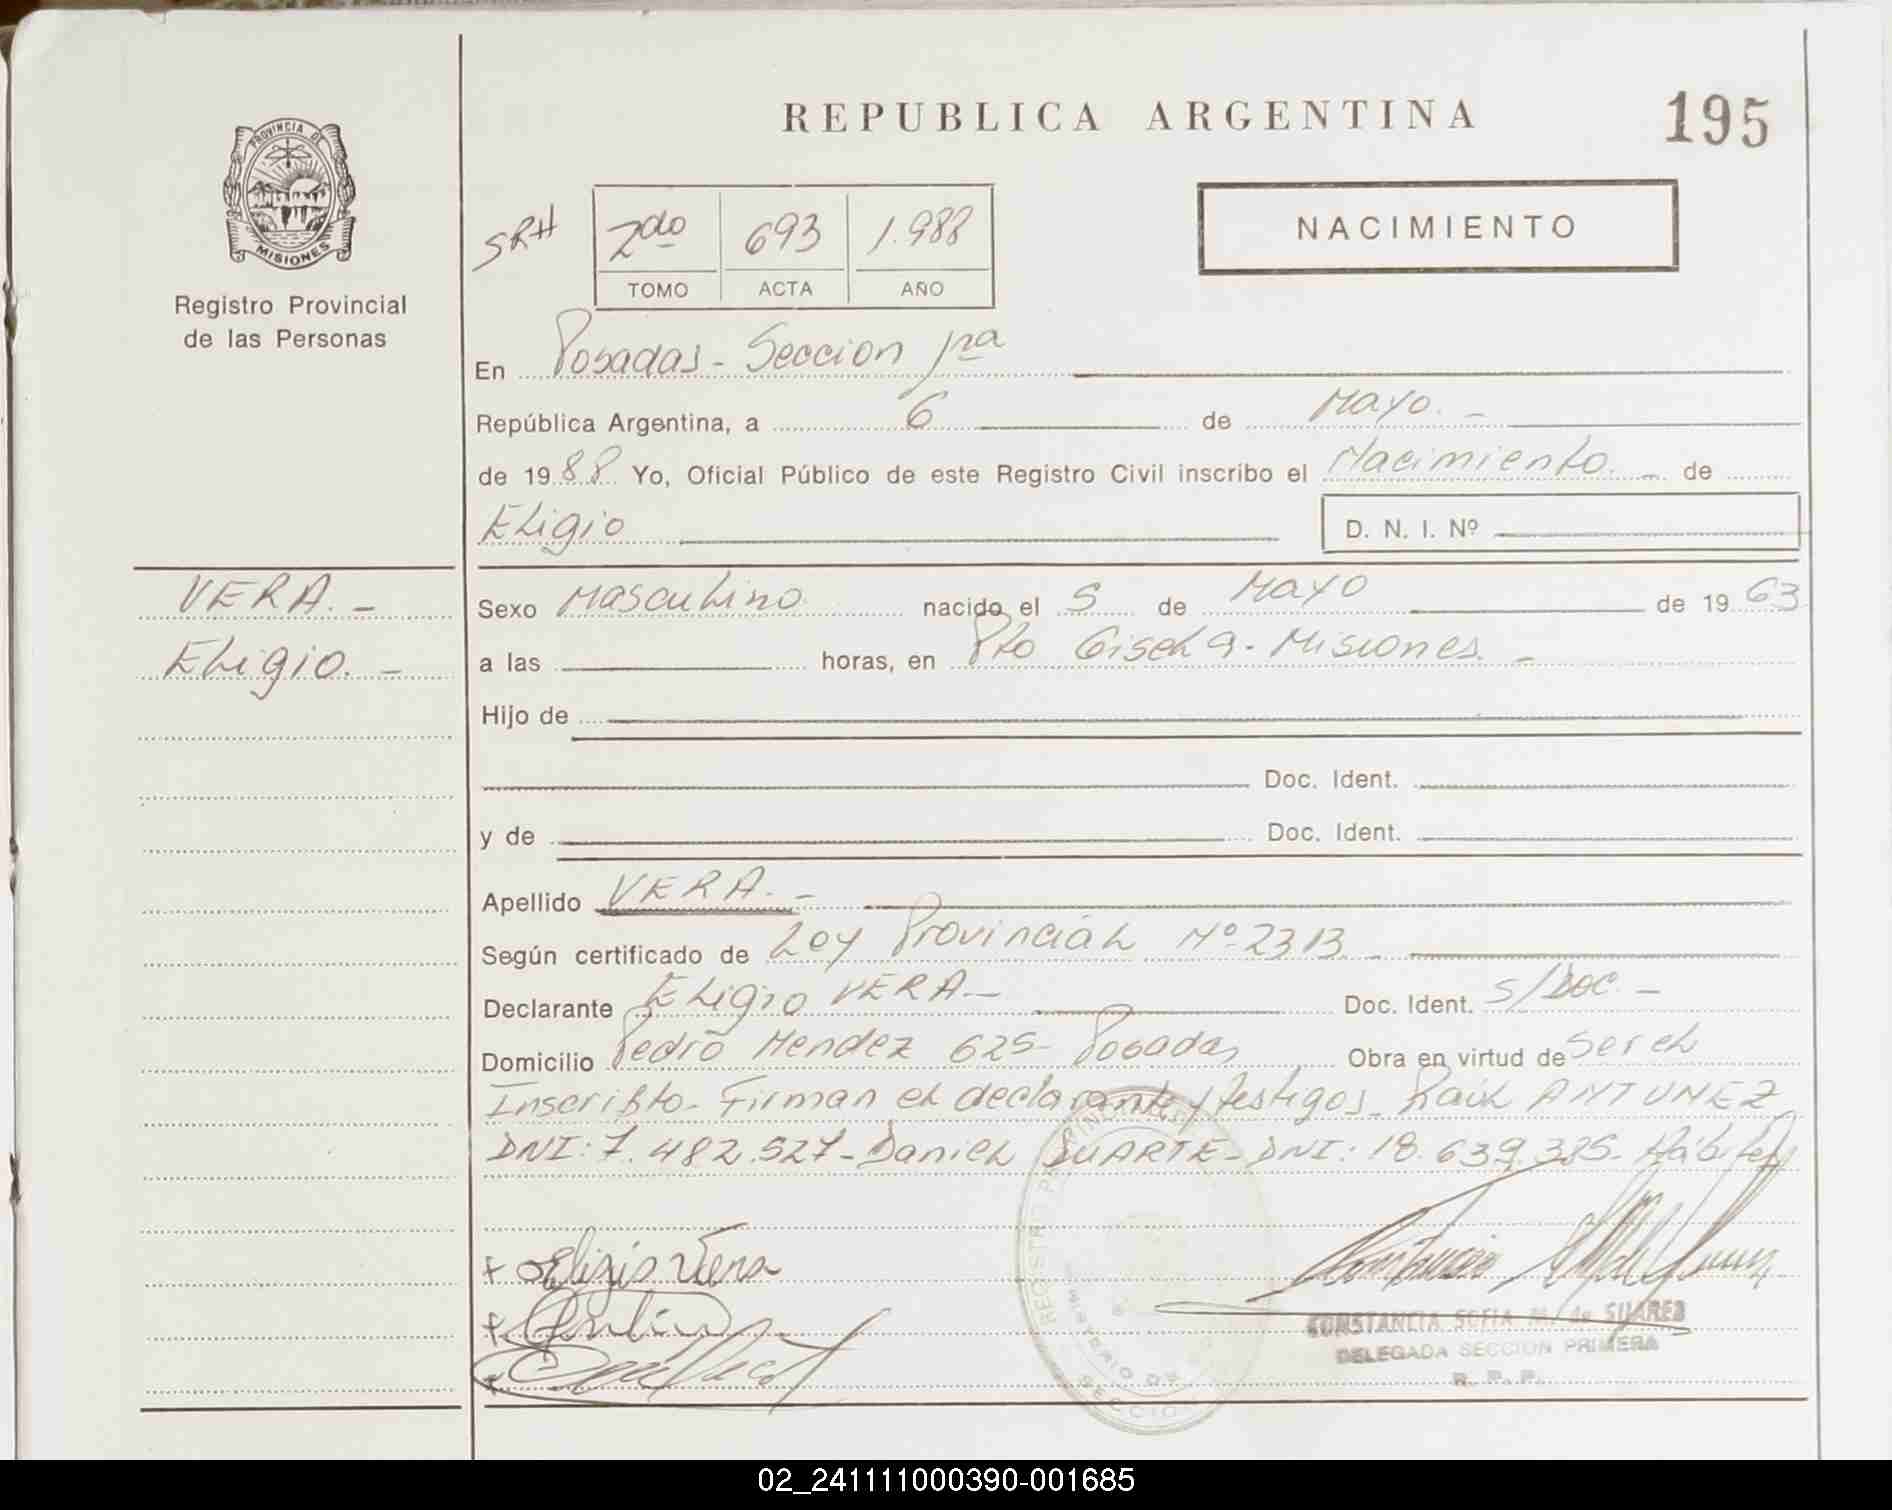 REPUBLICA ARGENTINA
195
PROVINCIA DE
MISIONES
Registro Provincial
de las Personas
SRH
2do 693 1.988
TOMO ACTA AÑO
NACIMIENTO
En Posadas - Seccion 1ra
República Argentina, a 6 de Mayo. -
de 1988 Yo, Oficial Público de este Registro Civil inscribo el Nacimiento. - de
Eligio
D. N. I. Nº
VERA. -
Eligio. -
Sexo Masculino nacido el 5 de Mayo de 1963
a las horas, en Pto Gisela - Misiones. -
Hijo de
Doc. Ident.
y de Doc. Ident.
Apellido VERA. -
Según certificado de Ley Provincial Nº 2313 -
Declarante Eligio VERA - Doc. Ident. S/Doc. -
Domicilio Pedro Mendez 625 - Posadas Obra en virtud de Ser el
Inscripto - Firman el declarante y testigos - Raúl ANTUNEZ
DNI: 7.482.527 - Daniel DUARTE - DNI: 18.639.385 - Hábiles
+ Eligio Vera
+
+
REGISTRO
MINISTERIO DE
SECCION
CONSTANCIA SOFIA M. de SUAREZ
DELEGADA SECCION PRIMERA
R. P. P.
02_241111000390-001685